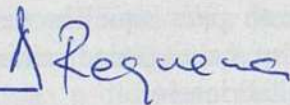 A Requena